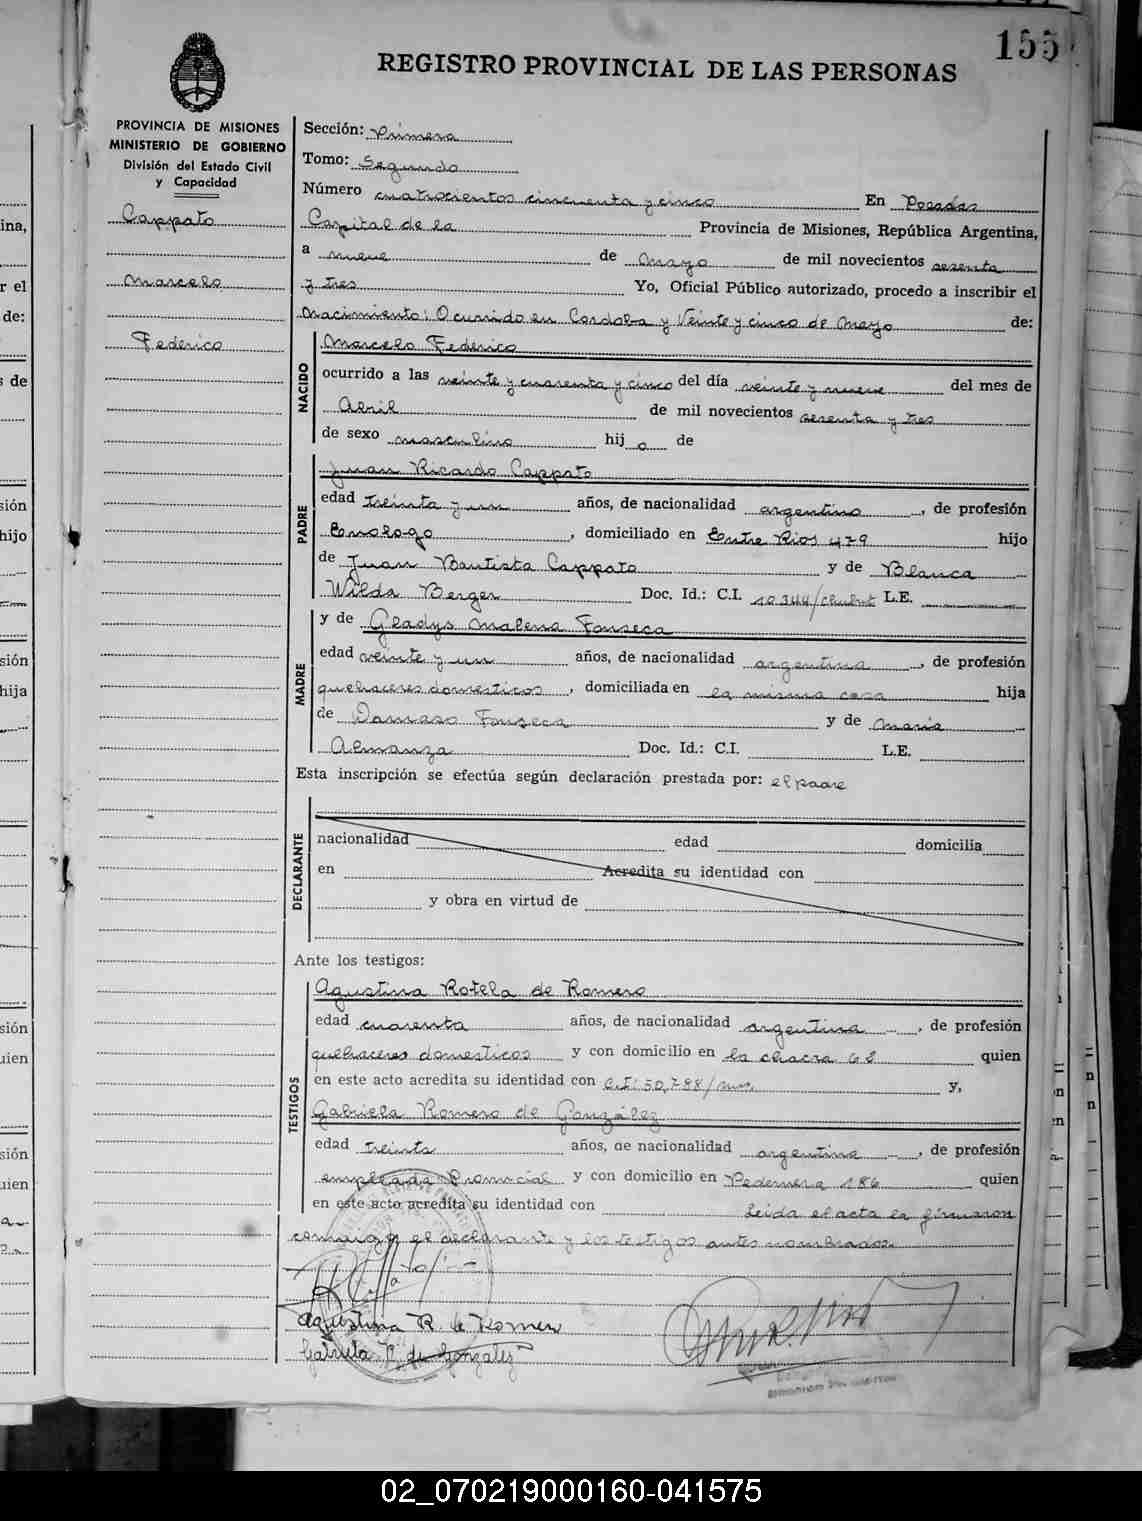 155
REGISTRO PROVINCIAL DE LAS PERSONAS
PROVINCIA DE MISIONES
MINISTERIO DE GOBIERNO
División del Estado Civil
y Capacidad
Cappato
Marcelo
Federico
Sección: Primera
Tomo: Segundo
Número cuatrocientos cincuenta y cinco En Posadas
Capital de la Provincia de Misiones, República Argentina,
a nueve de Mayo de mil novecientos sesenta
y tres Yo, Oficial Público autorizado, procedo a inscribir el
Nacimiento: Ocurrido en Cordoba y Veinte y cinco de Mayo de:
NACIDO
Marcelo Federico
ocurrido a las veinte y cuarenta y cinco del día veinte y nueve del mes de
Abril de mil novecientos sesenta y tres
de sexo masculino hij o de
PADRE
Juan Ricardo Cappato
edad treinta y un años, de nacionalidad argentino, de profesión
Enologo, domiciliado en Entre Rios 479 hijo
de Juan Bautista Cappato y de Blanca
Wilda Berger Doc. Id.: C.I. 10344/Chubut L.E.
MADRE
y de Gladys Malena Fonseca
edad veinte y un años, de nacionalidad argentina, de profesión
quehaceres domesticos, domiciliada en la misma casa hija
de Damaso Fonseca y de Maria
Almanza Doc. Id.: C.I. L.E.
Esta inscripción se efectúa según declaración prestada por: el padre
DECLARANTE
nacionalidad edad domicilia
en Acredita su identidad con
y obra en virtud de
Ante los testigos:
TESTIGOS
Agustina Rotela de Romero
edad cuarenta años, de nacionalidad argentina, de profesión
quehaceres domesticos y con domicilio en la chacra 68 quien
en este acto acredita su identidad con C.I: 50,788/mns. y,
Gabriela Romero de González
edad treinta años, de nacionalidad argentina, de profesión
empleada Provincial y con domicilio en Pedernera 186 quien
en este acto acredita su identidad con Leida el acta la firmaron
conmigo el declarante y los testigos antes nombrados.
Agustina R. de Romero
Gabriela R. de Gonzalez
02_070219000160-041575